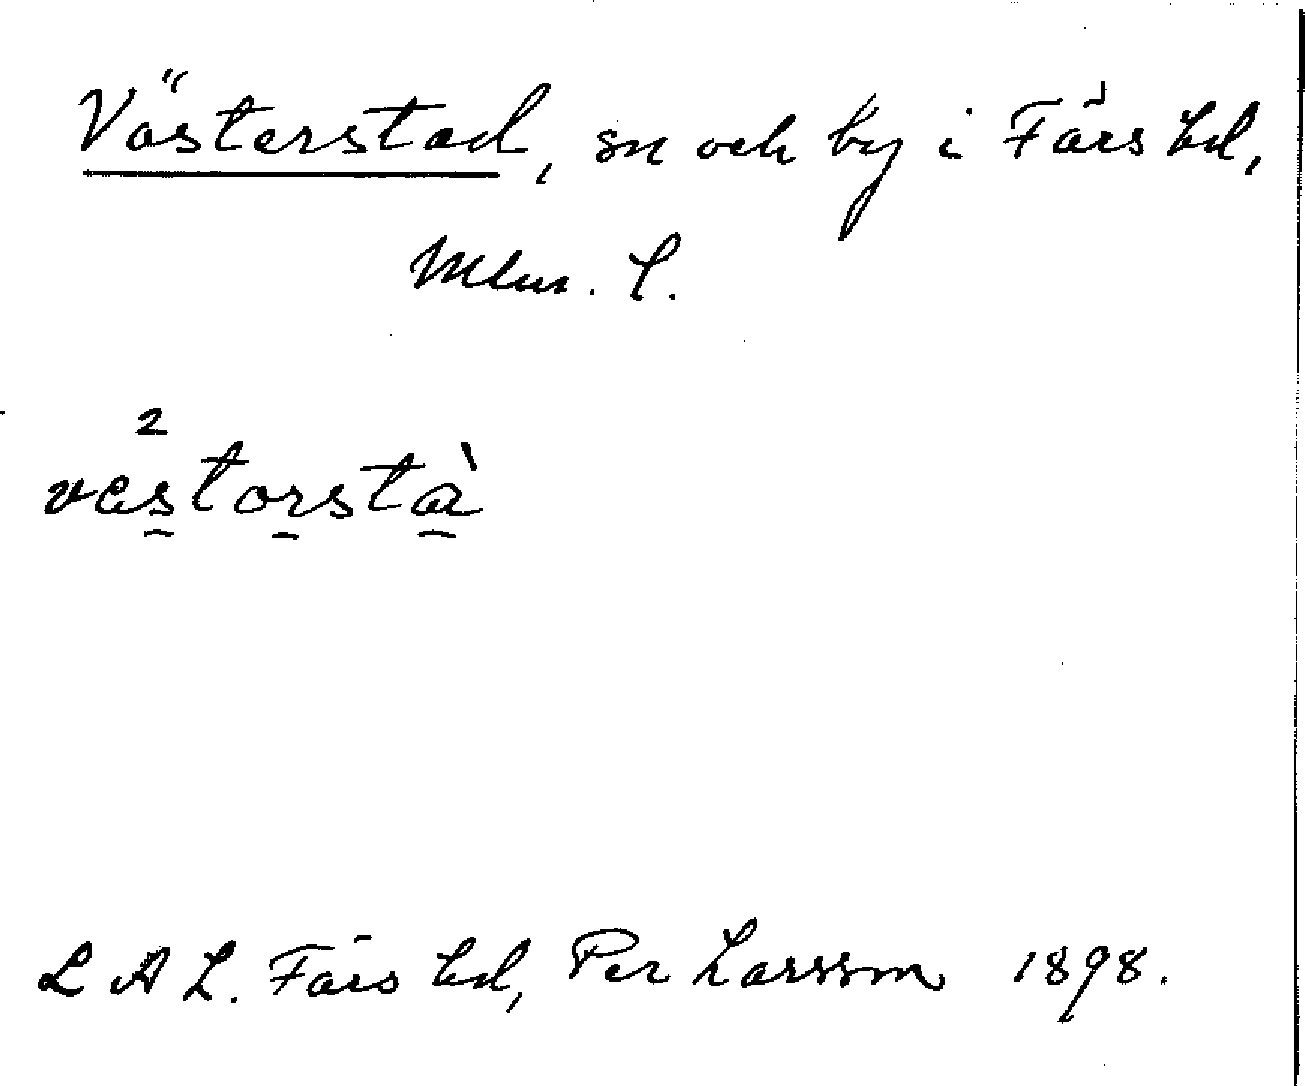 Västerstad, sn och by i Färs hd,
Mlm. l.
²vestorstà
L A L. Färs hd, Per Larsson 1898.